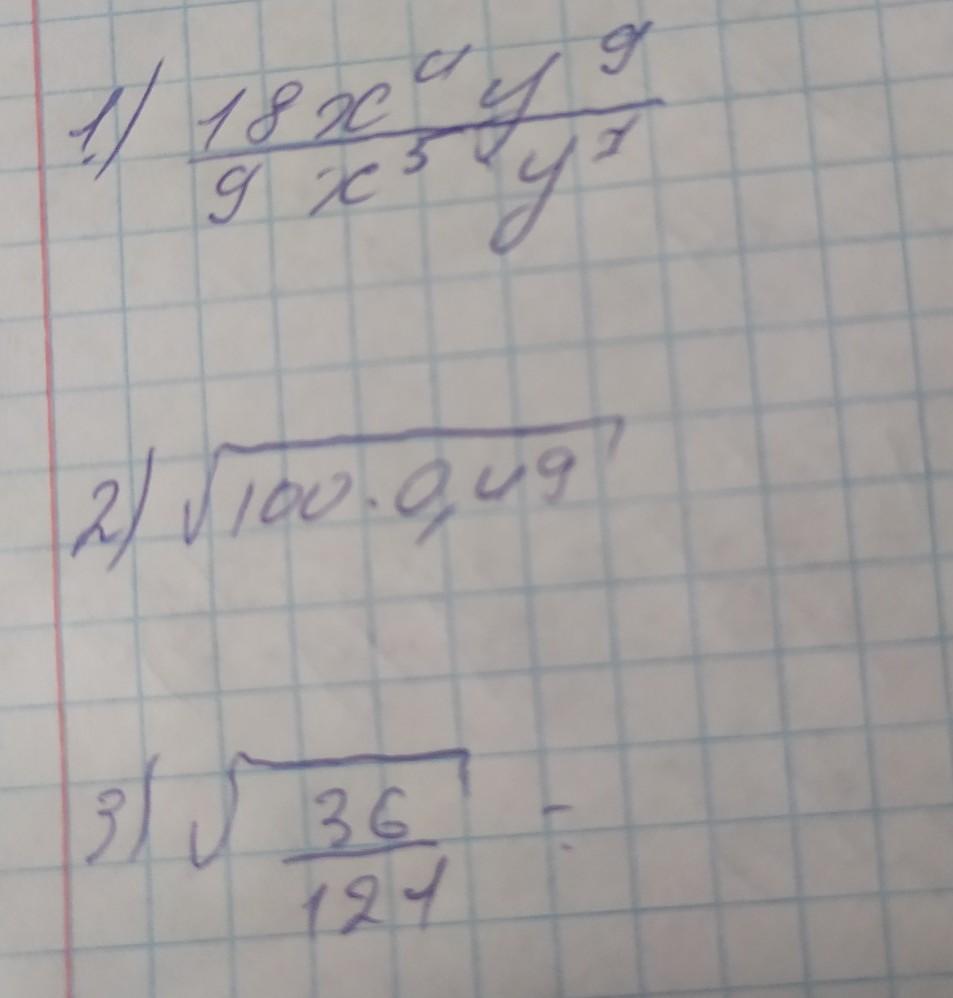 1) 18x⁴y⁹
9x³y⁷
2) √100·0,49
3) √36/121 =